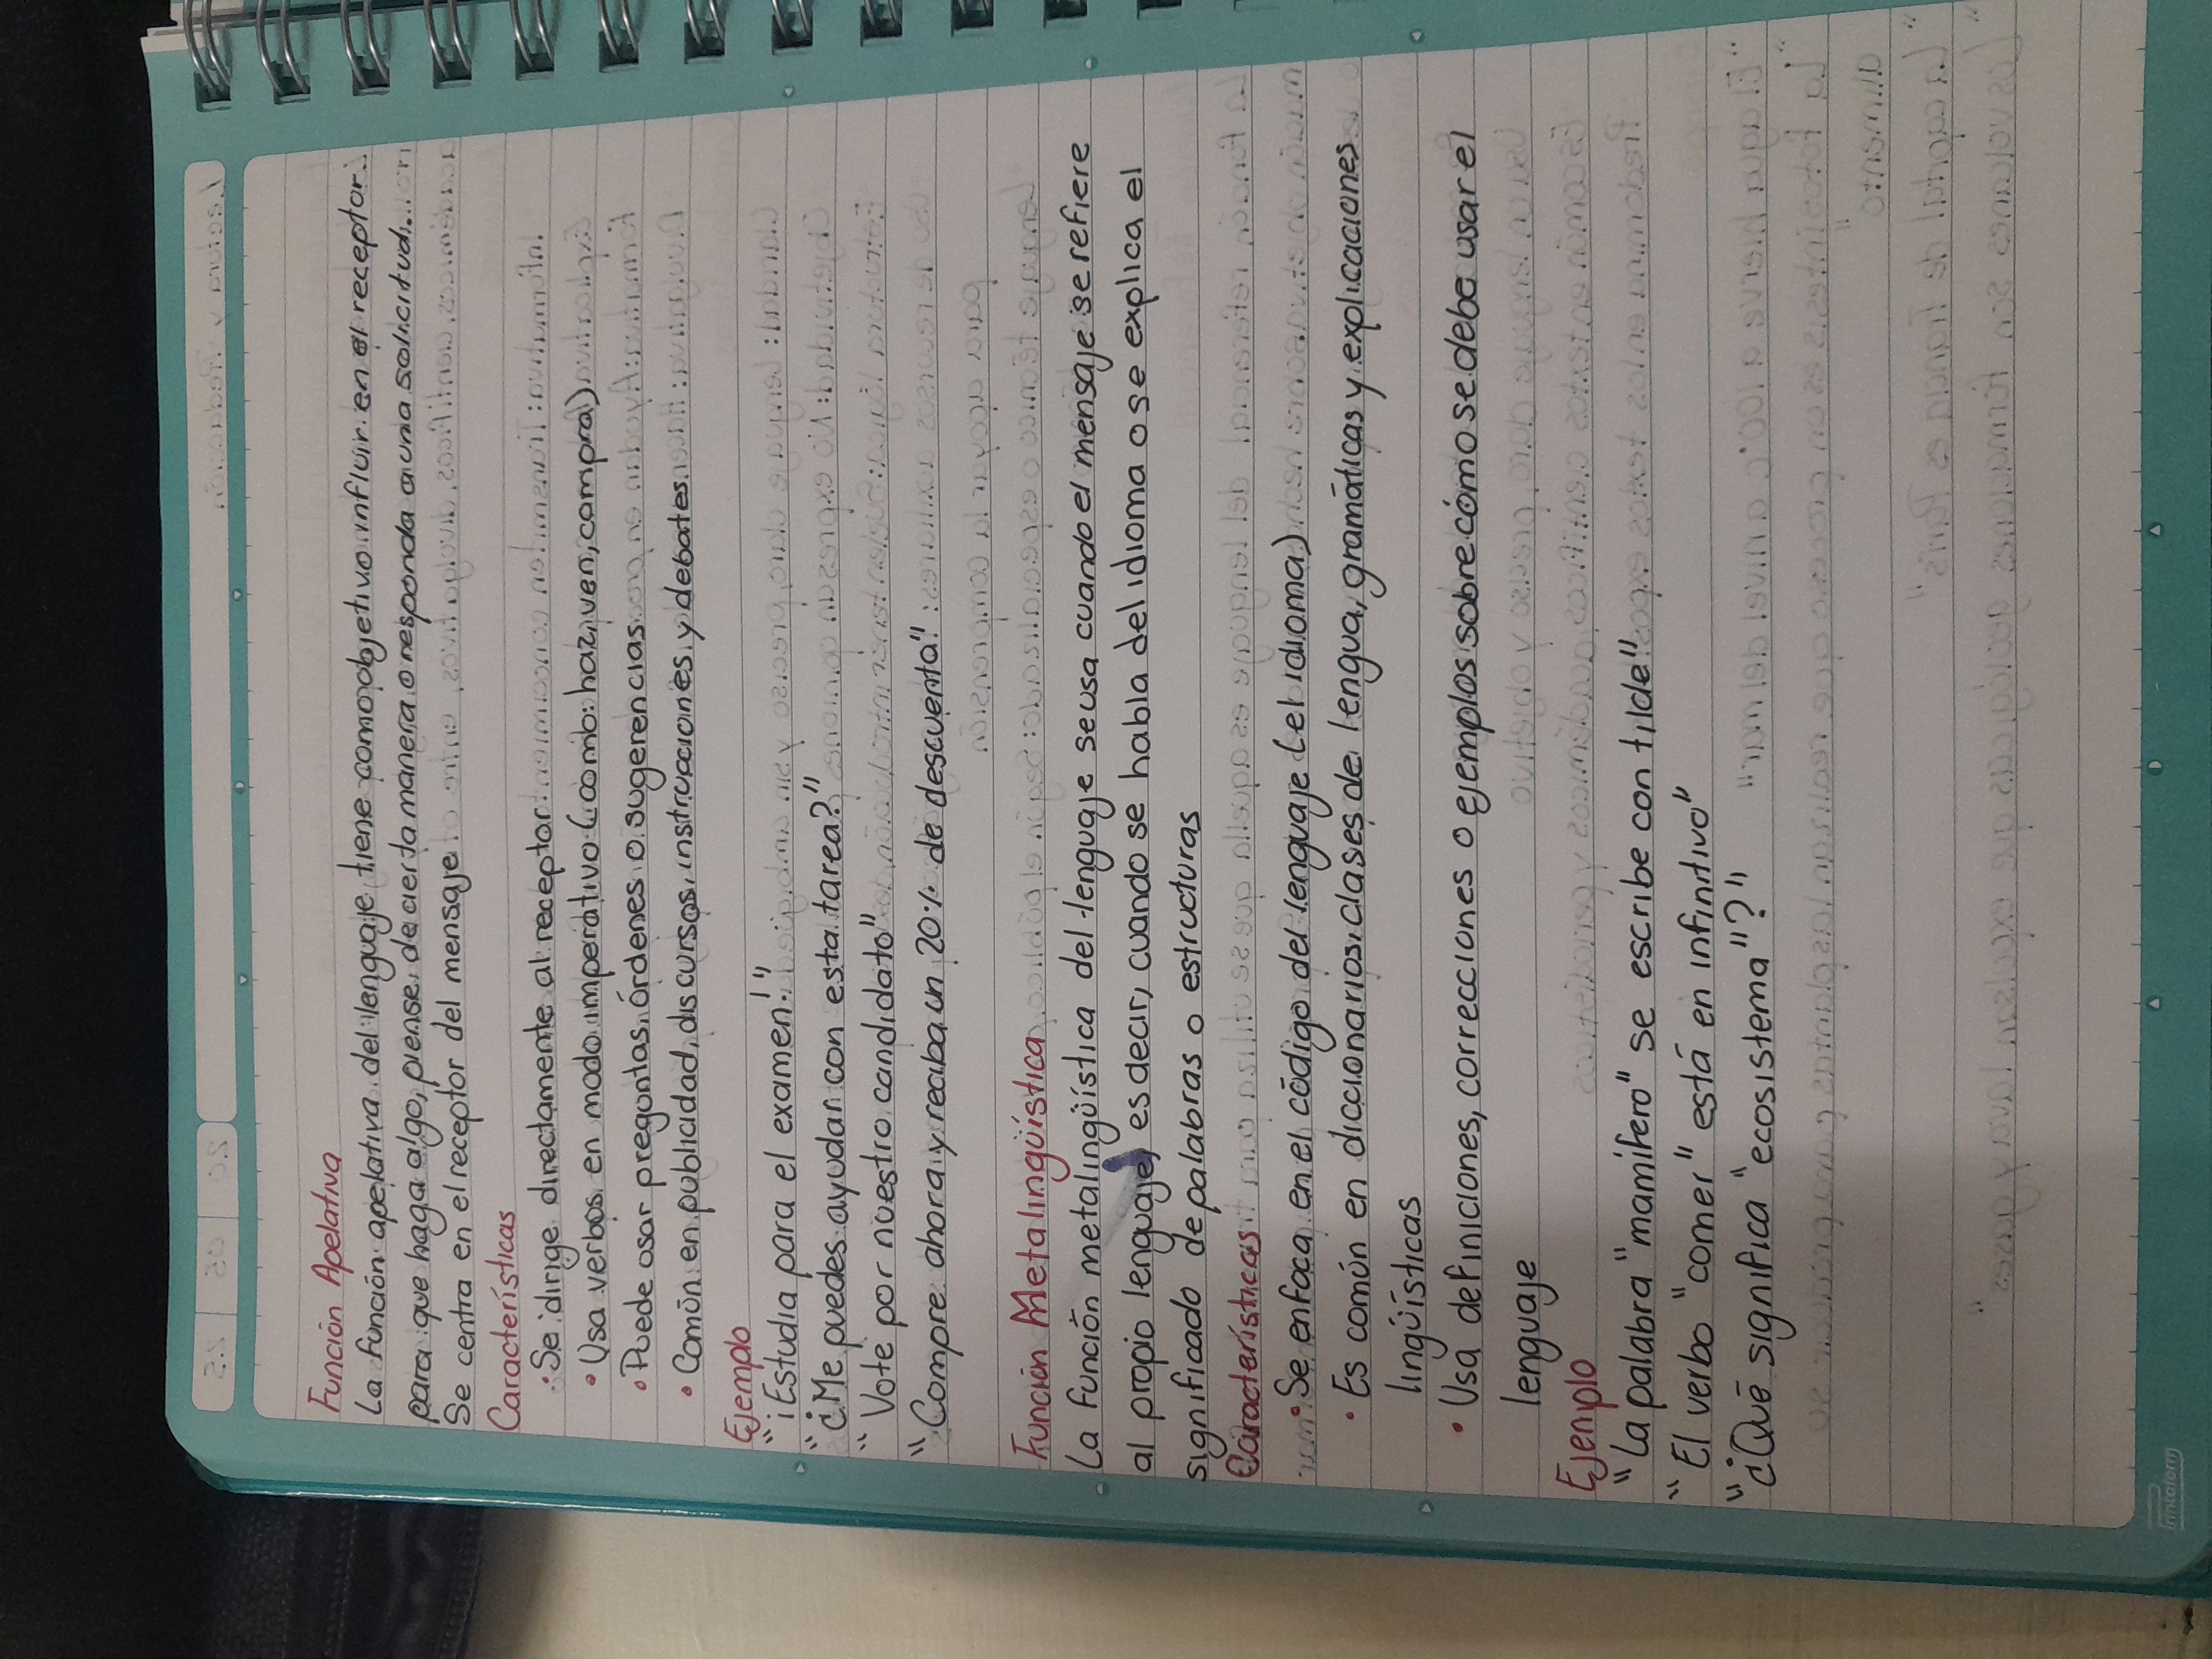 Función Apelativa
La función apelativa del lenguaje tiene como objetivo influir en el receptor
para que haga algo, piense de cierta manera o responda a una solicitud.
Se centra en el receptor del mensaje
Características
• Se dirige directamente al receptor
• Usa verbos en modo imperativo (como: haz, ven, compra)
• Puede usar preguntas, órdenes o sugerencias
• Común en publicidad, discursos, instrucciones y debates
Ejemplo
"¡Estudia para el examen!"
"¿Me puedes ayudar con esta tarea?"
"Vote por nuestro candidato"
"Compre ahora y reciba un 20% de descuento"
Función Metalingüística
La función metalingüística del lenguaje se usa cuando el mensaje se refiere
al propio lenguaje, es decir, cuando se habla del idioma o se explica el
significado de palabras o estructuras
Características
• Se enfoca en el código del lenguaje (el idioma)
• Es común en diccionarios, clases de lengua, gramáticas y explicaciones
lingüísticas
• Usa definiciones, correcciones o ejemplos sobre cómo se debe usar el
lenguaje
Ejemplo
"La palabra "mamífero" se escribe con tilde"
"El verbo "comer" está en infinitivo"
"¿Qué significa "ecosistema"?"
Printaform